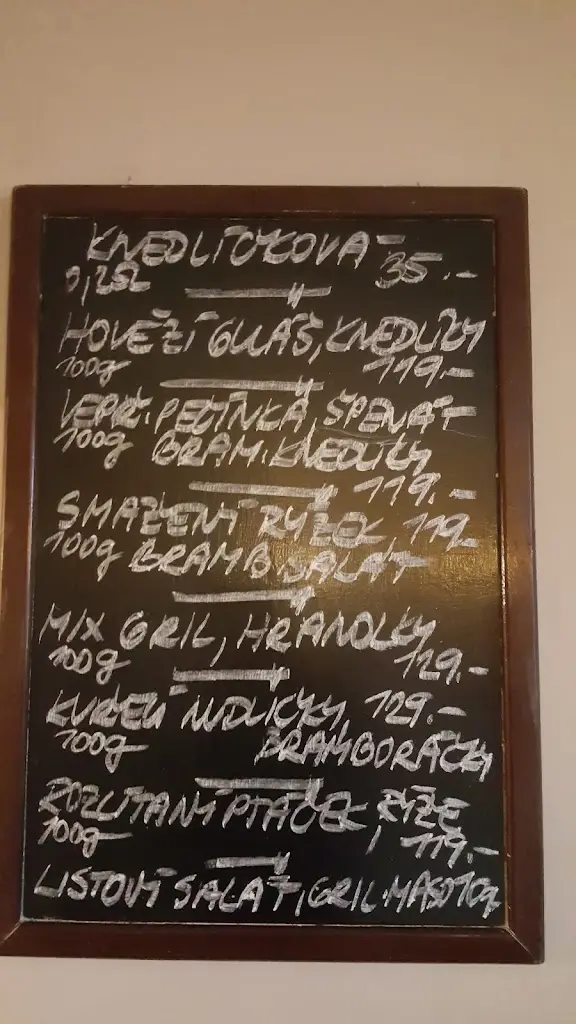 KNEDLÍČKOVÁ 35.-
0,25L
HOVĚZÍ GULÁŠ, KNEDLÍKY
100g 119.-
VEPŘ. PEČÍNKA, ŠPENÁT
100g BRAM. KNEDLÍKY
119.-
SMAŽENÝ ŘÍZEK, 119.-
100g BRAMB. SALÁT
MIX GRIL, HRANOLKY
100g 129.-
KUŘECÍ NUDLIČKY, 129.-
100g BRAMBORÁČKY
ROZLÍTANÝ PTÁČEK, RÝŽE
100g 119.-
LISTOVÝ SALÁT, GRIL. MASO